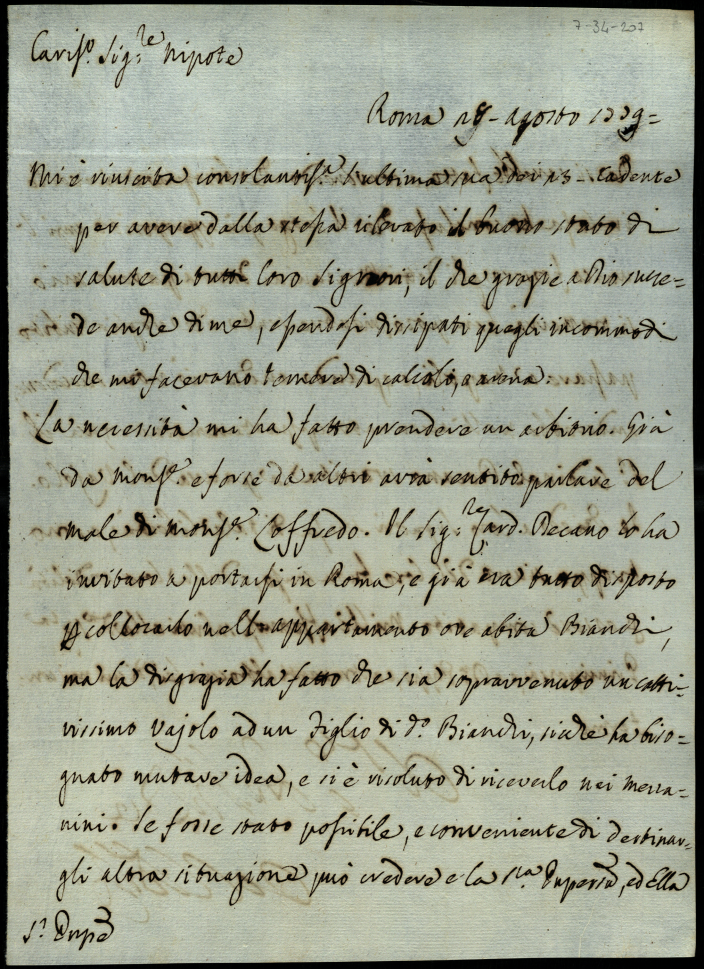 7-34-207
Cariss.º Sig.re Nipote
Roma 28 - Agosto 1779 =
Mi è riuscita consolantiss.ª l'ultima sua dei 23 - cadente
per avere dalla stessa rilevato il buono stato di
salute di tutti loro Signori, il che grazie a Dio succe=
de anche di me, essendosi dissipati quegli incommodi
che mi facevano temere di calcoli, o arena.
La necessità mi ha fatto prendere un arbitrio. Già
da Mons.r e forse da altri avrà sentito parlare del
male di Mons.r Loffredo. Il Sig.re Card. Decano lo ha
invitato a portarsi in Roma, e già era tutto disposto
p collocarlo nell'appartamento ove abita Bianchi,
ma la disgrazia ha fatto che sia sopravvenuto un catti=
vissimo vajolo ad un Figlio di d.º Bianchi, sicchè ha biso=
gnato mutare idea, e si è risoluto di riceverlo nei mezza=
nini. Se fosse stato possibile, e conveniente di destinar=
gli altra situazione può credere e la S.ra ed Ella
S.r